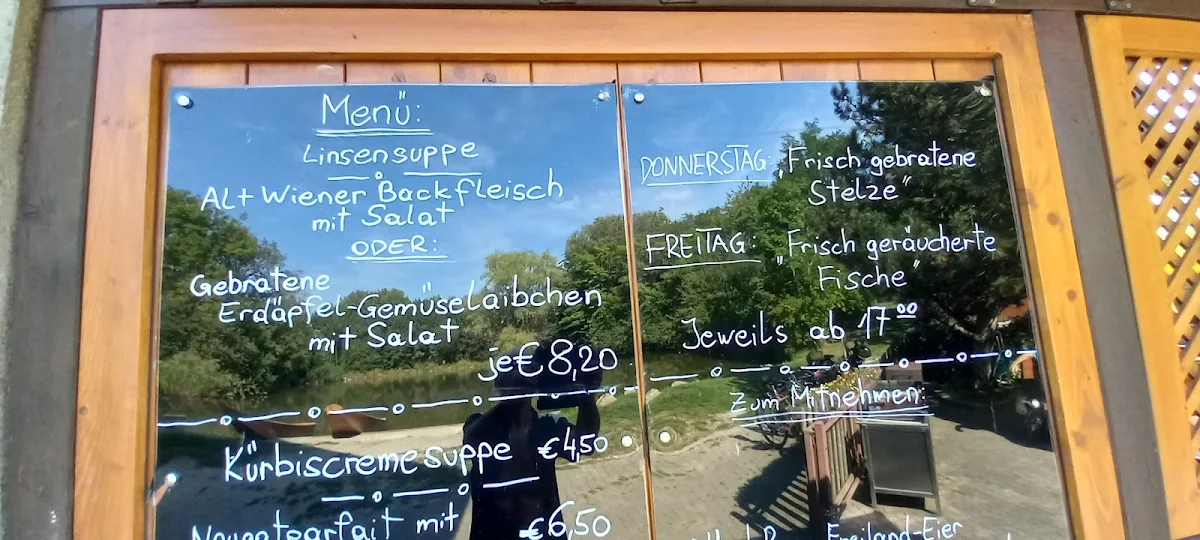 Menü:
Linsensuppe
Alt Wiener Backfleisch
mit Salat
ODER:
Gebratene
Erdäpfel-Gemüselaibchen
mit Salat
je € 8,20
Kürbiscremesuppe € 4,50
mit € 6,50
DONNERSTAG: „Frisch gebratene
Stelze"
FREITAG: „Frisch geräucherte
Fische"
Jeweils ab 17⁰⁰
Zum Mitnehmen:
Freiland-Eier